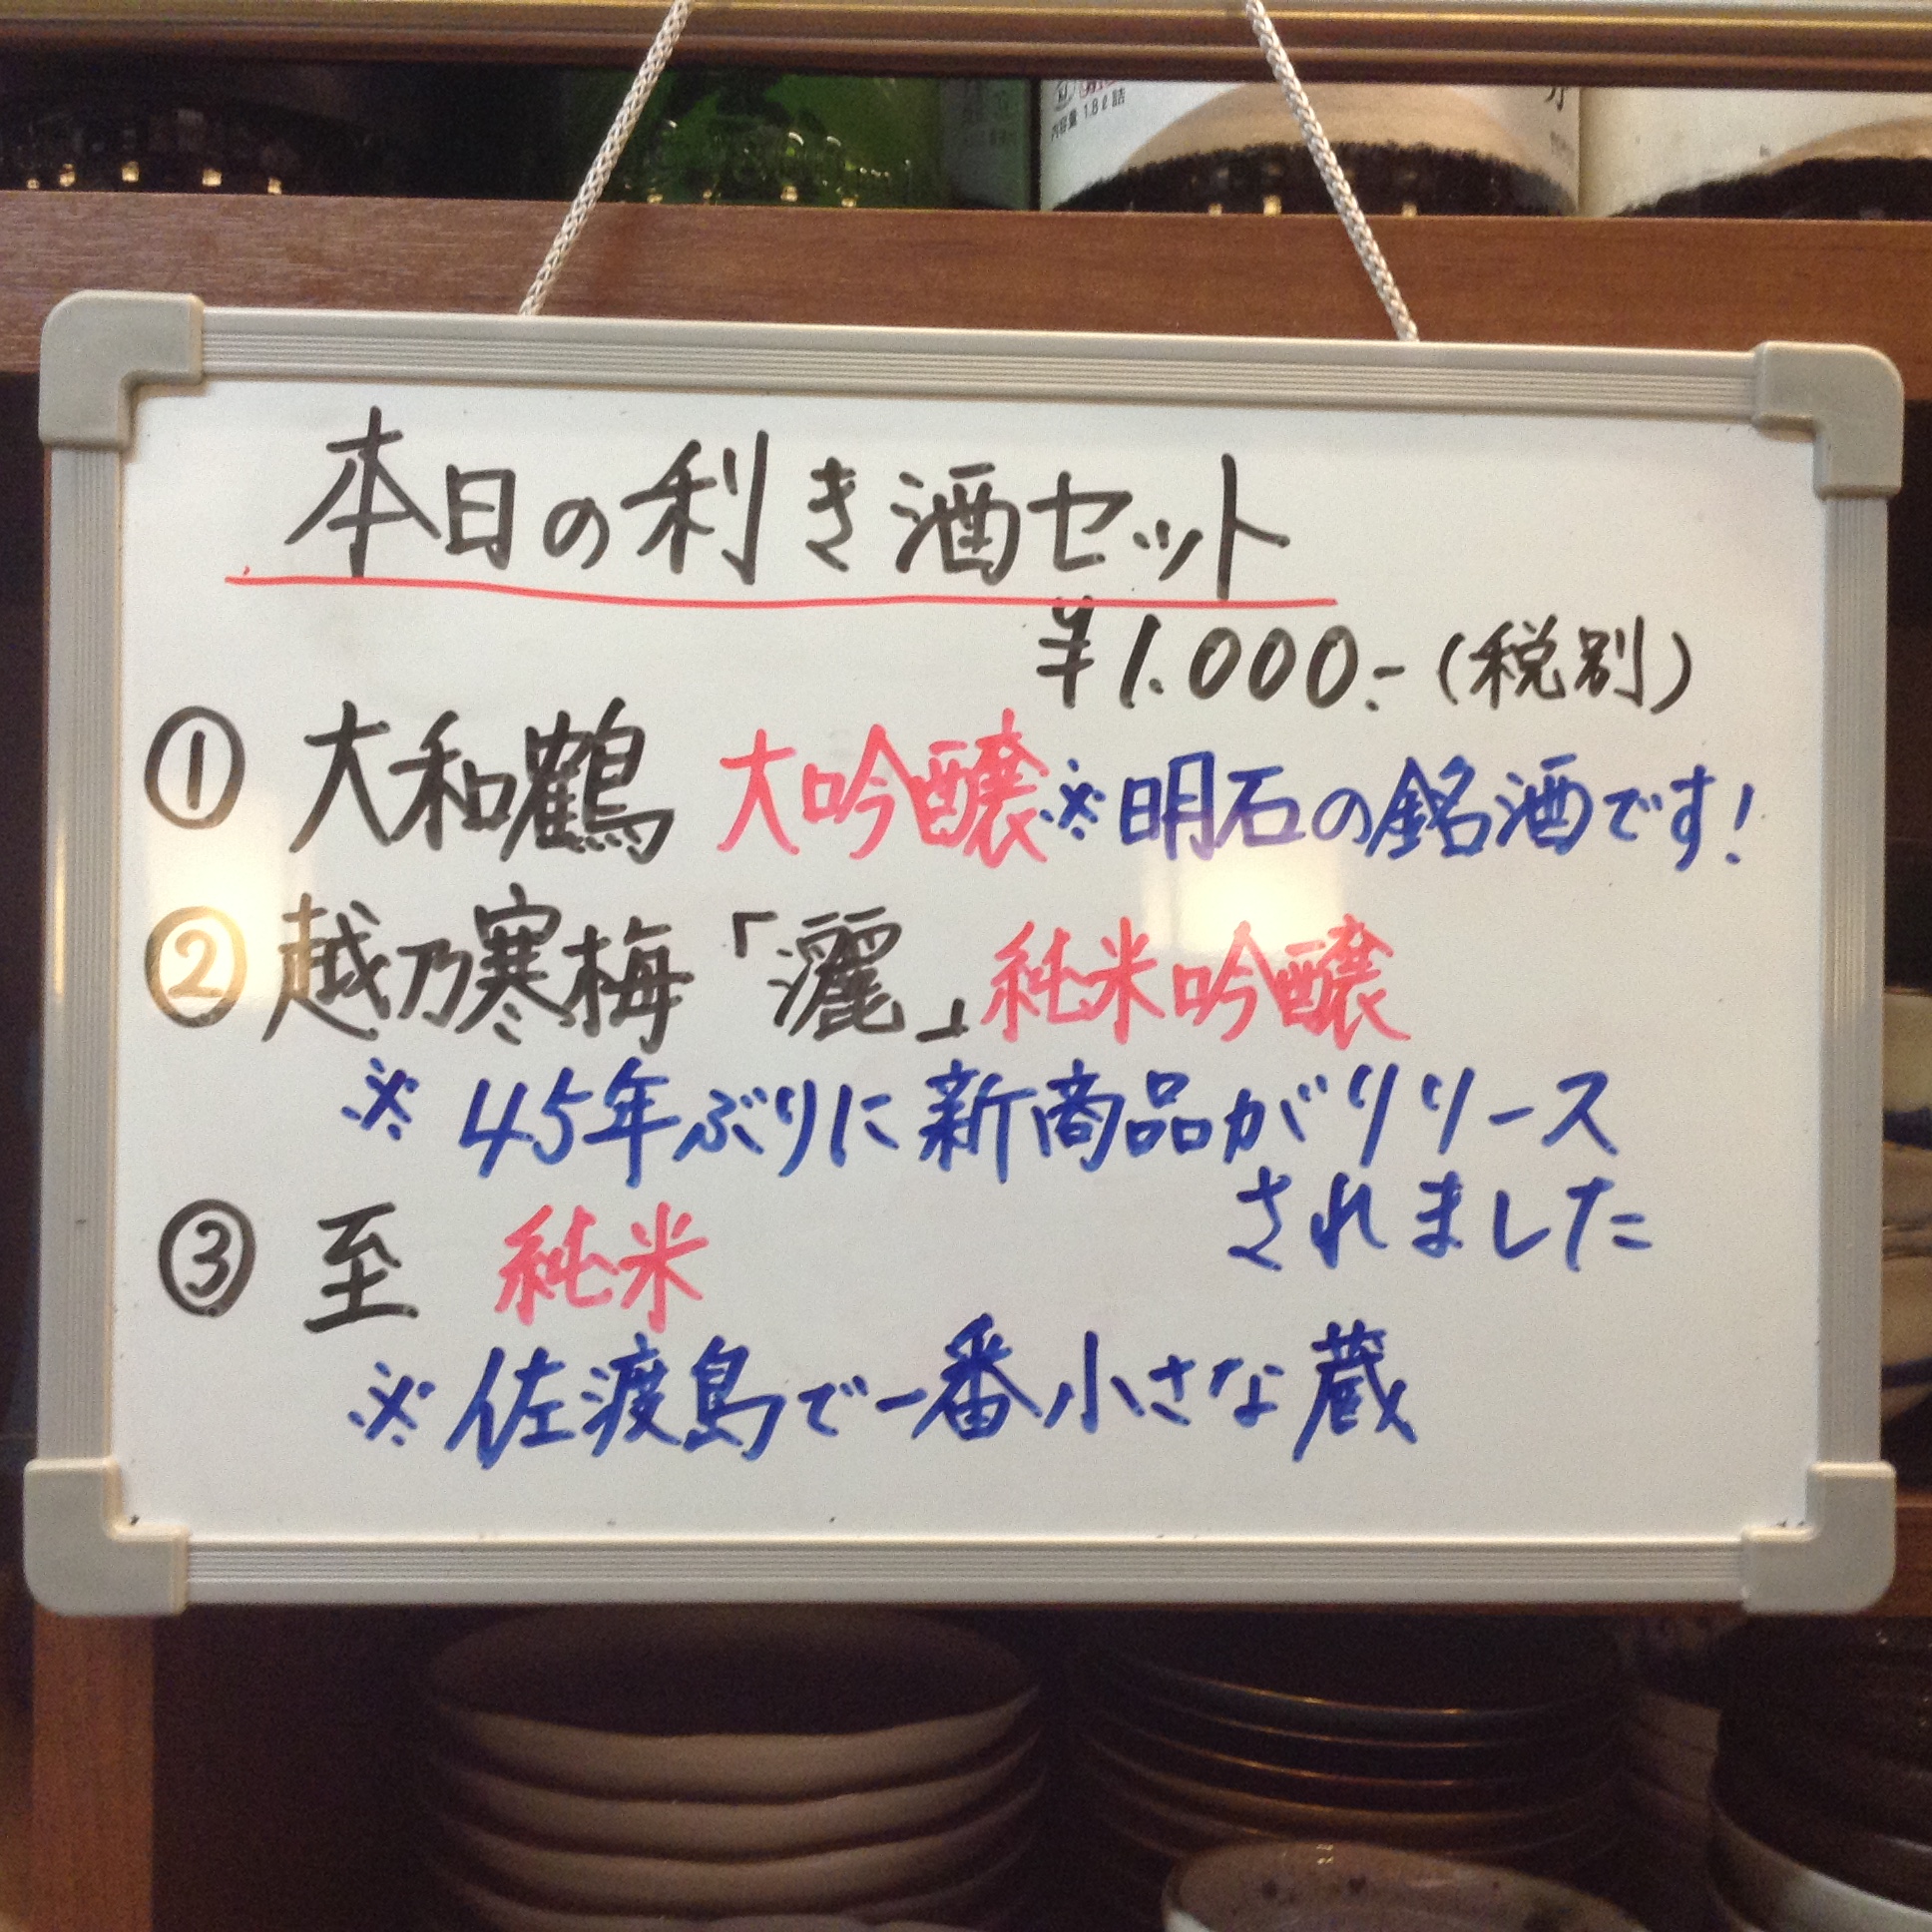 内容量 1.8ℓ詰
本日の利き酒セット
¥1.000.-(税別)
① 大和鶴 大吟醸 ※明石の銘酒です!
② 越乃寒梅「灑」純米吟醸
※ 45年ぶりに新商品がリリース
されました
③ 至 純米
※ 佐渡島で一番小さな蔵